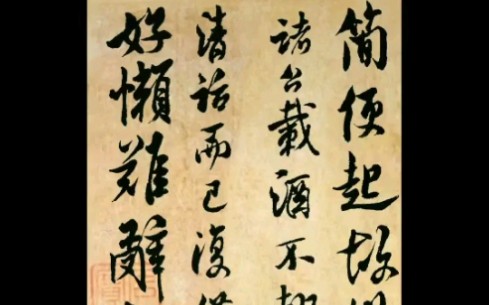 簡便起故
諸公載酒不
清話而已復
好懶難辭